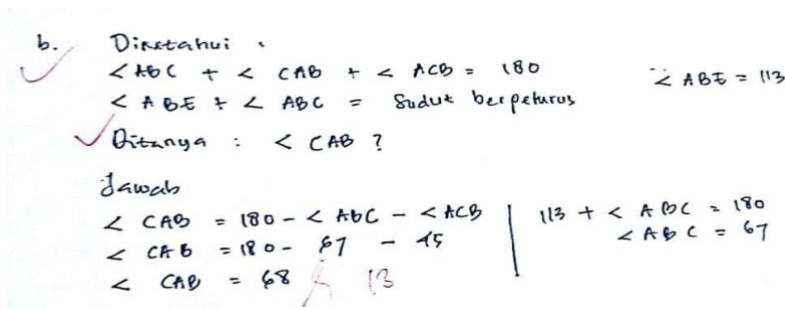 b. Diketahui :
< ABC + < CAB + < ACB = 180
∠ ABE = 113
< ABE + < ABC = Sudut berpelurus
Ditanya : < CAB ?
Jawab
< CAB = 180 - < ABC - < ACB
< CAB = 180 - 67 - 45
< CAB = 68
13
113 + < ABC = 180
< ABC = 67